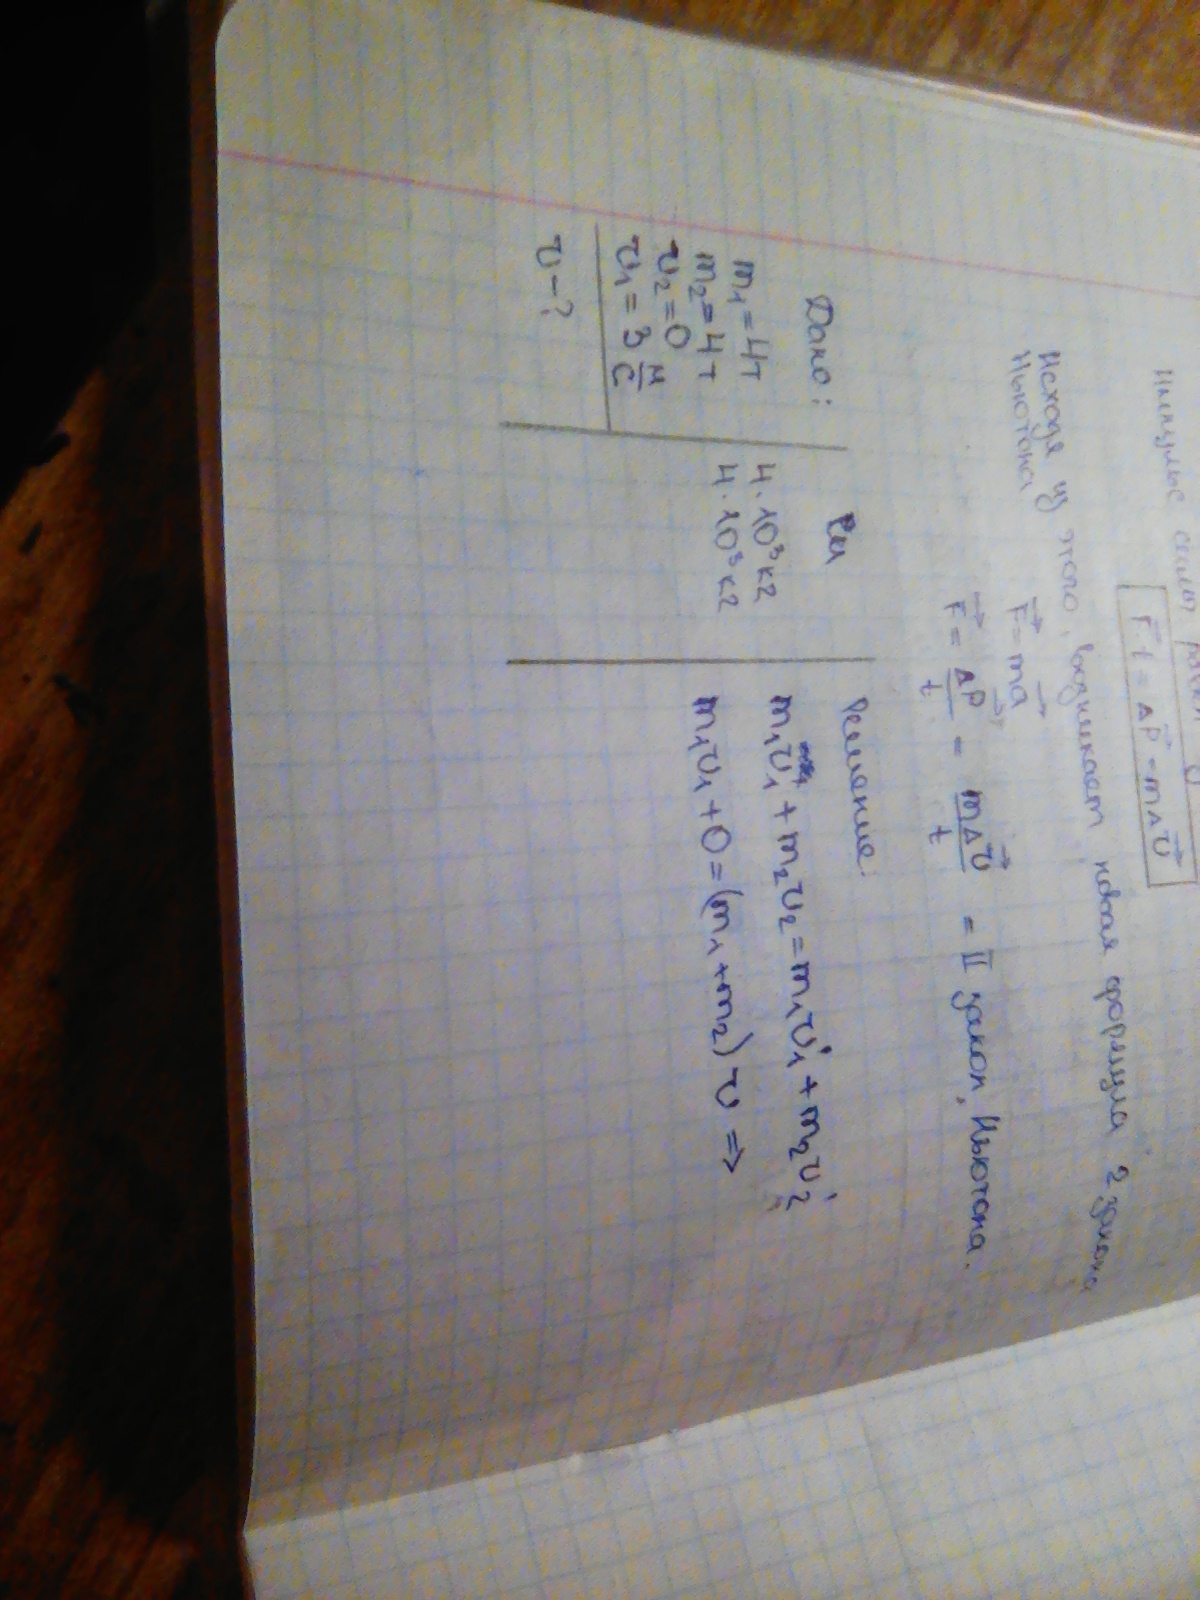 Импульс силы равен
F⃗·t = Δp⃗ = mΔv⃗
Исходя из этого, возникает новая формула 2 закона
Ньютона
F⃗=ma⃗
F⃗ = Δp⃗/t = mΔv⃗/t = II закон Ньютона.
Дано:
m₁=4т
m₂=4т
v₂=0
v₁=3 м/с
v-?
4·10³кг
4·10³кг
Решение:
m₁v₁+m₂v₂=m₁v₁'+m₂v₂'
m₁v₁+0=(m₁+m₂)v =>